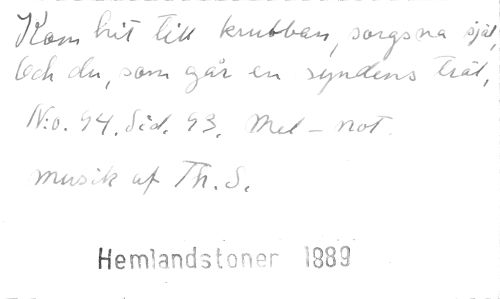 Kom hit till krubban, sorgsna själ,
Och du, som går en syndens träl,
N:o. 94. Sid. 93. Mel-not.
musik af Th. S.
Hemlandstoner 1889